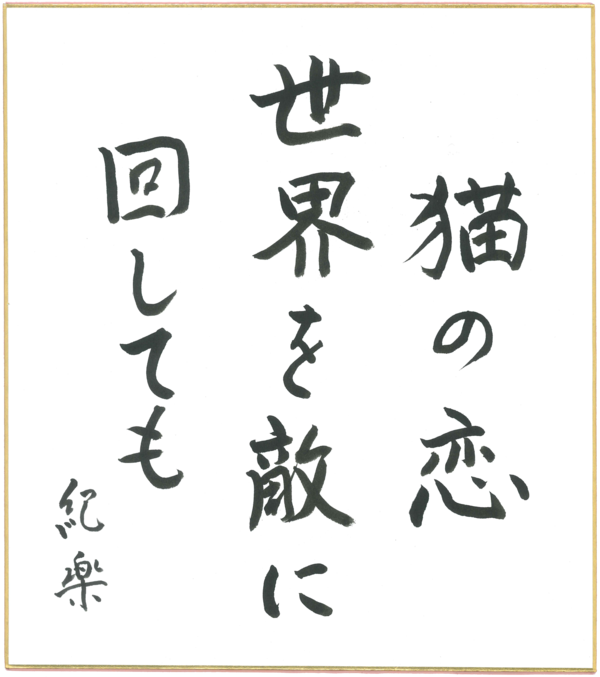 猫の恋
世界を敵に
回しても
紀楽